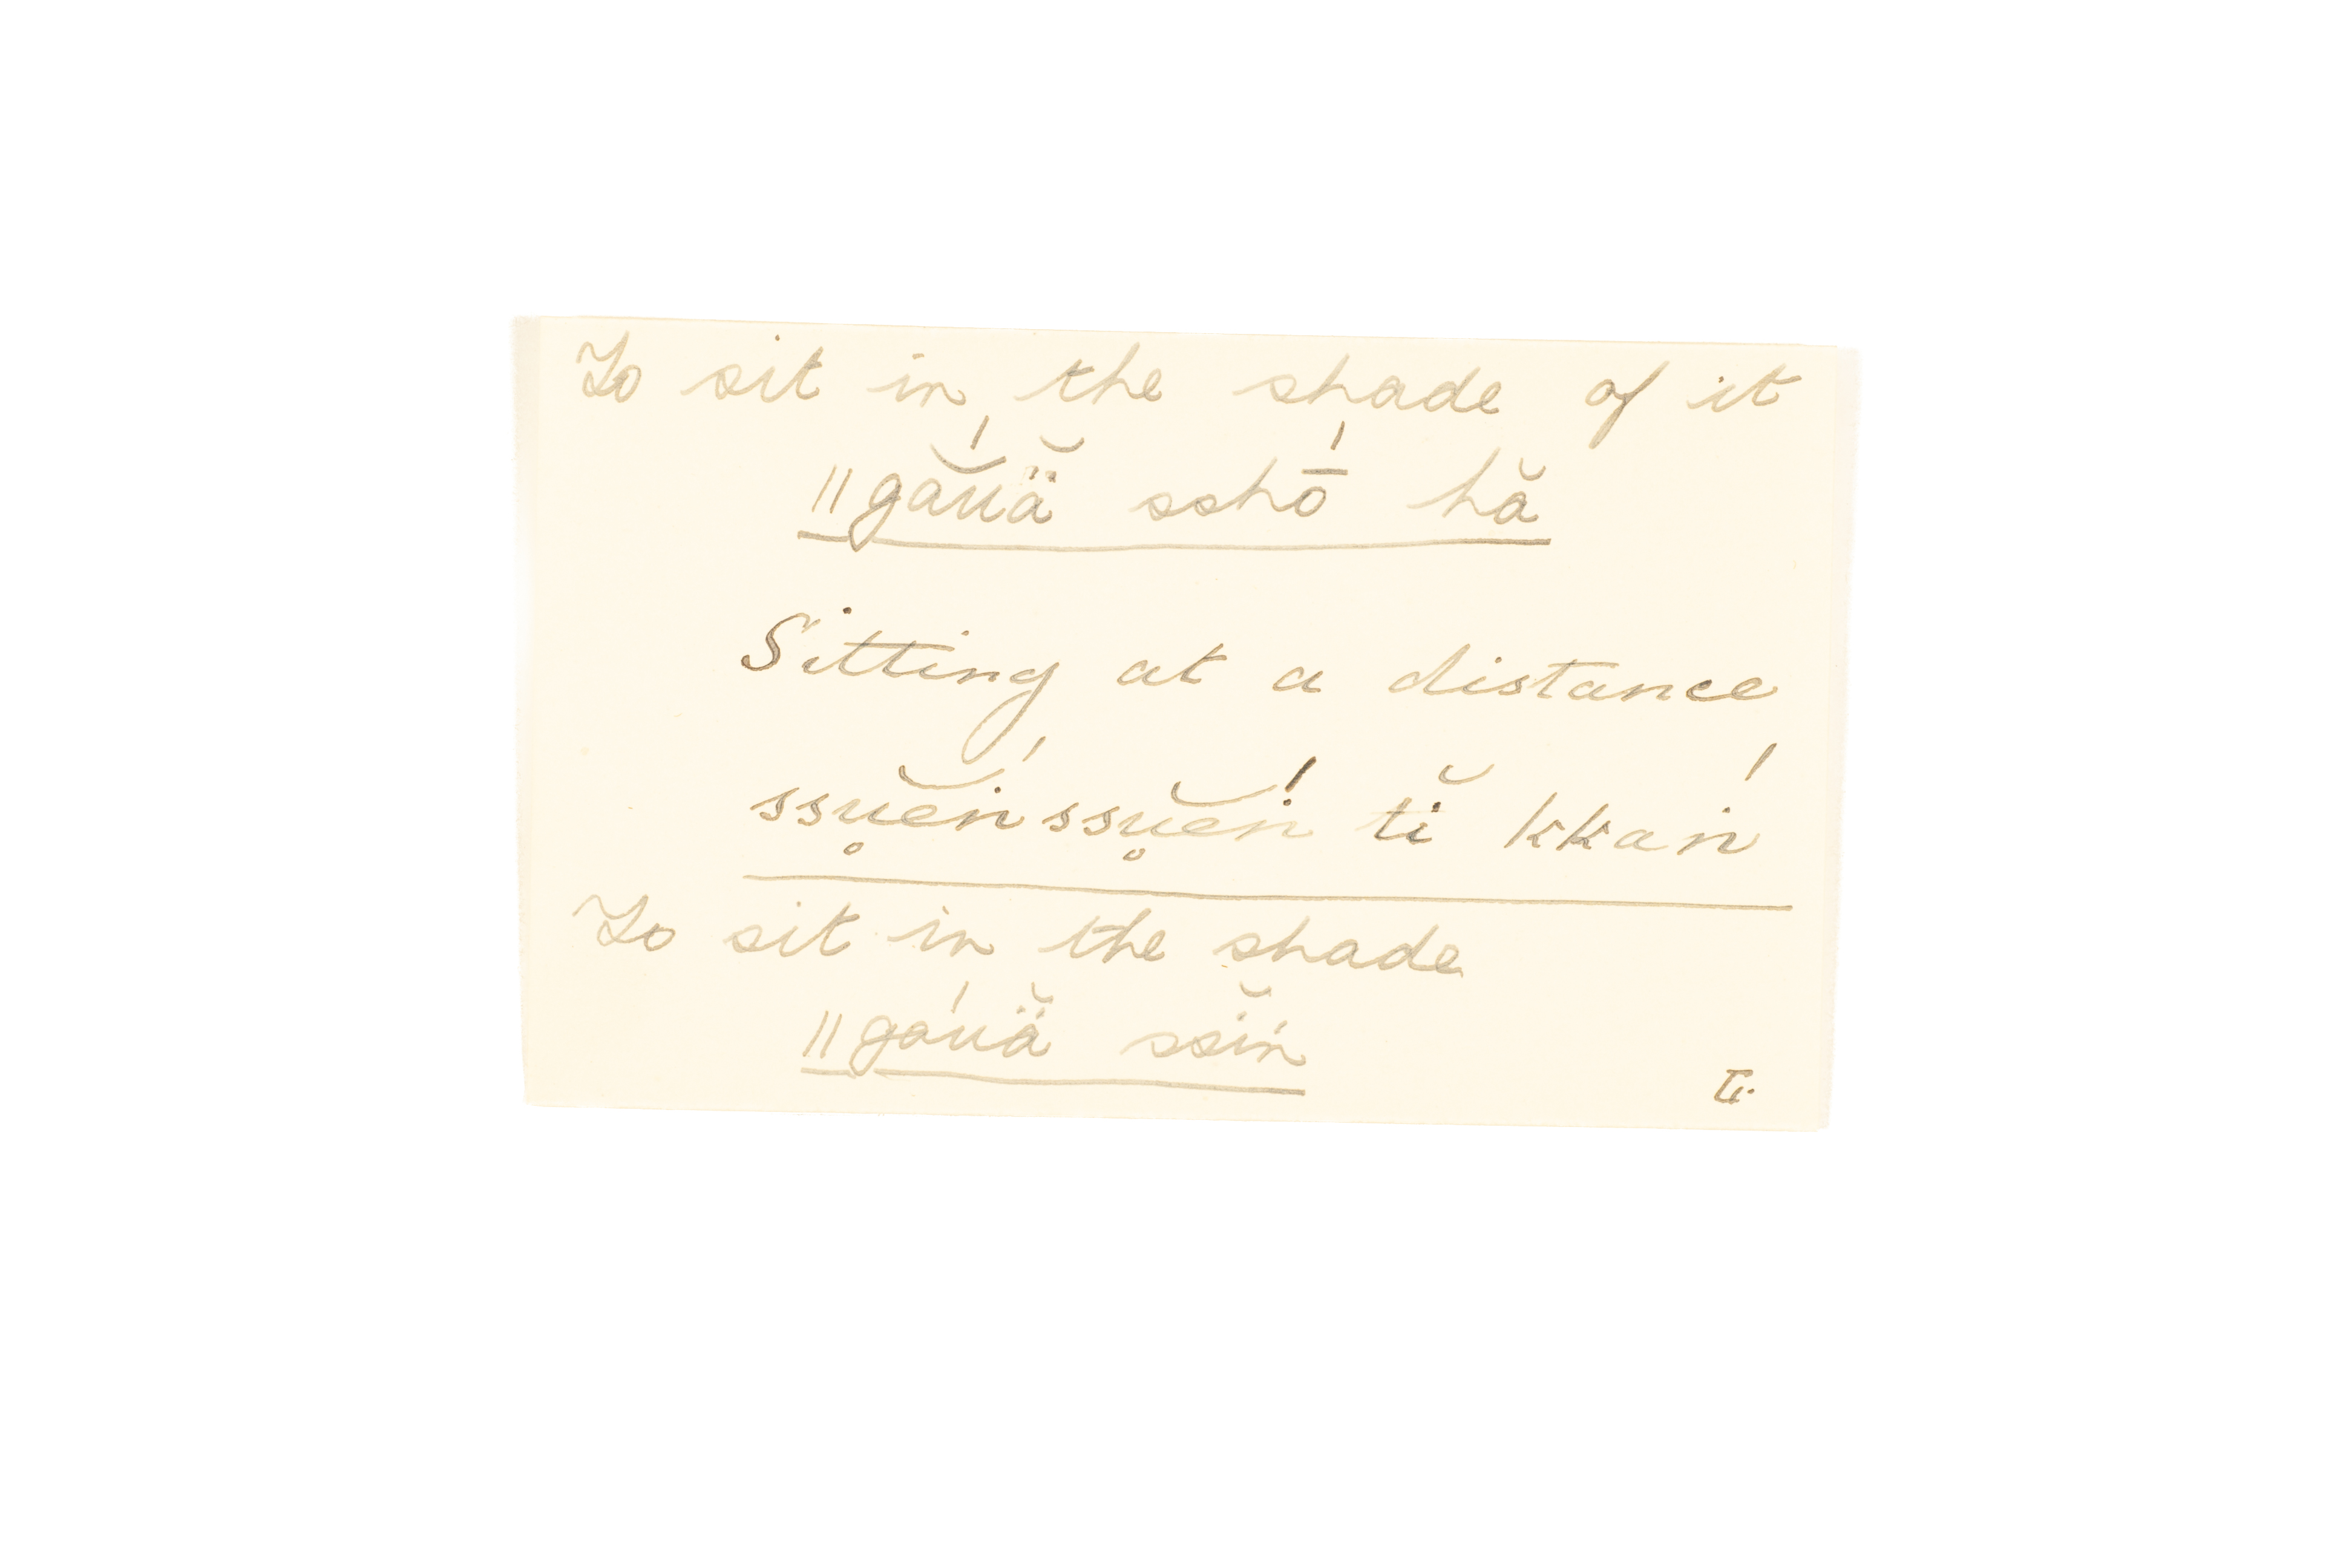 To sit in the shade of it
ǁgắŭä̆ sshṓ hă
Sitting at a distance
ssu̥ĕṅ́ssu̥ĕṅ́ tĭ kkaṅ́
To sit in the shade
ǁgáuä̆ ssĭṅ